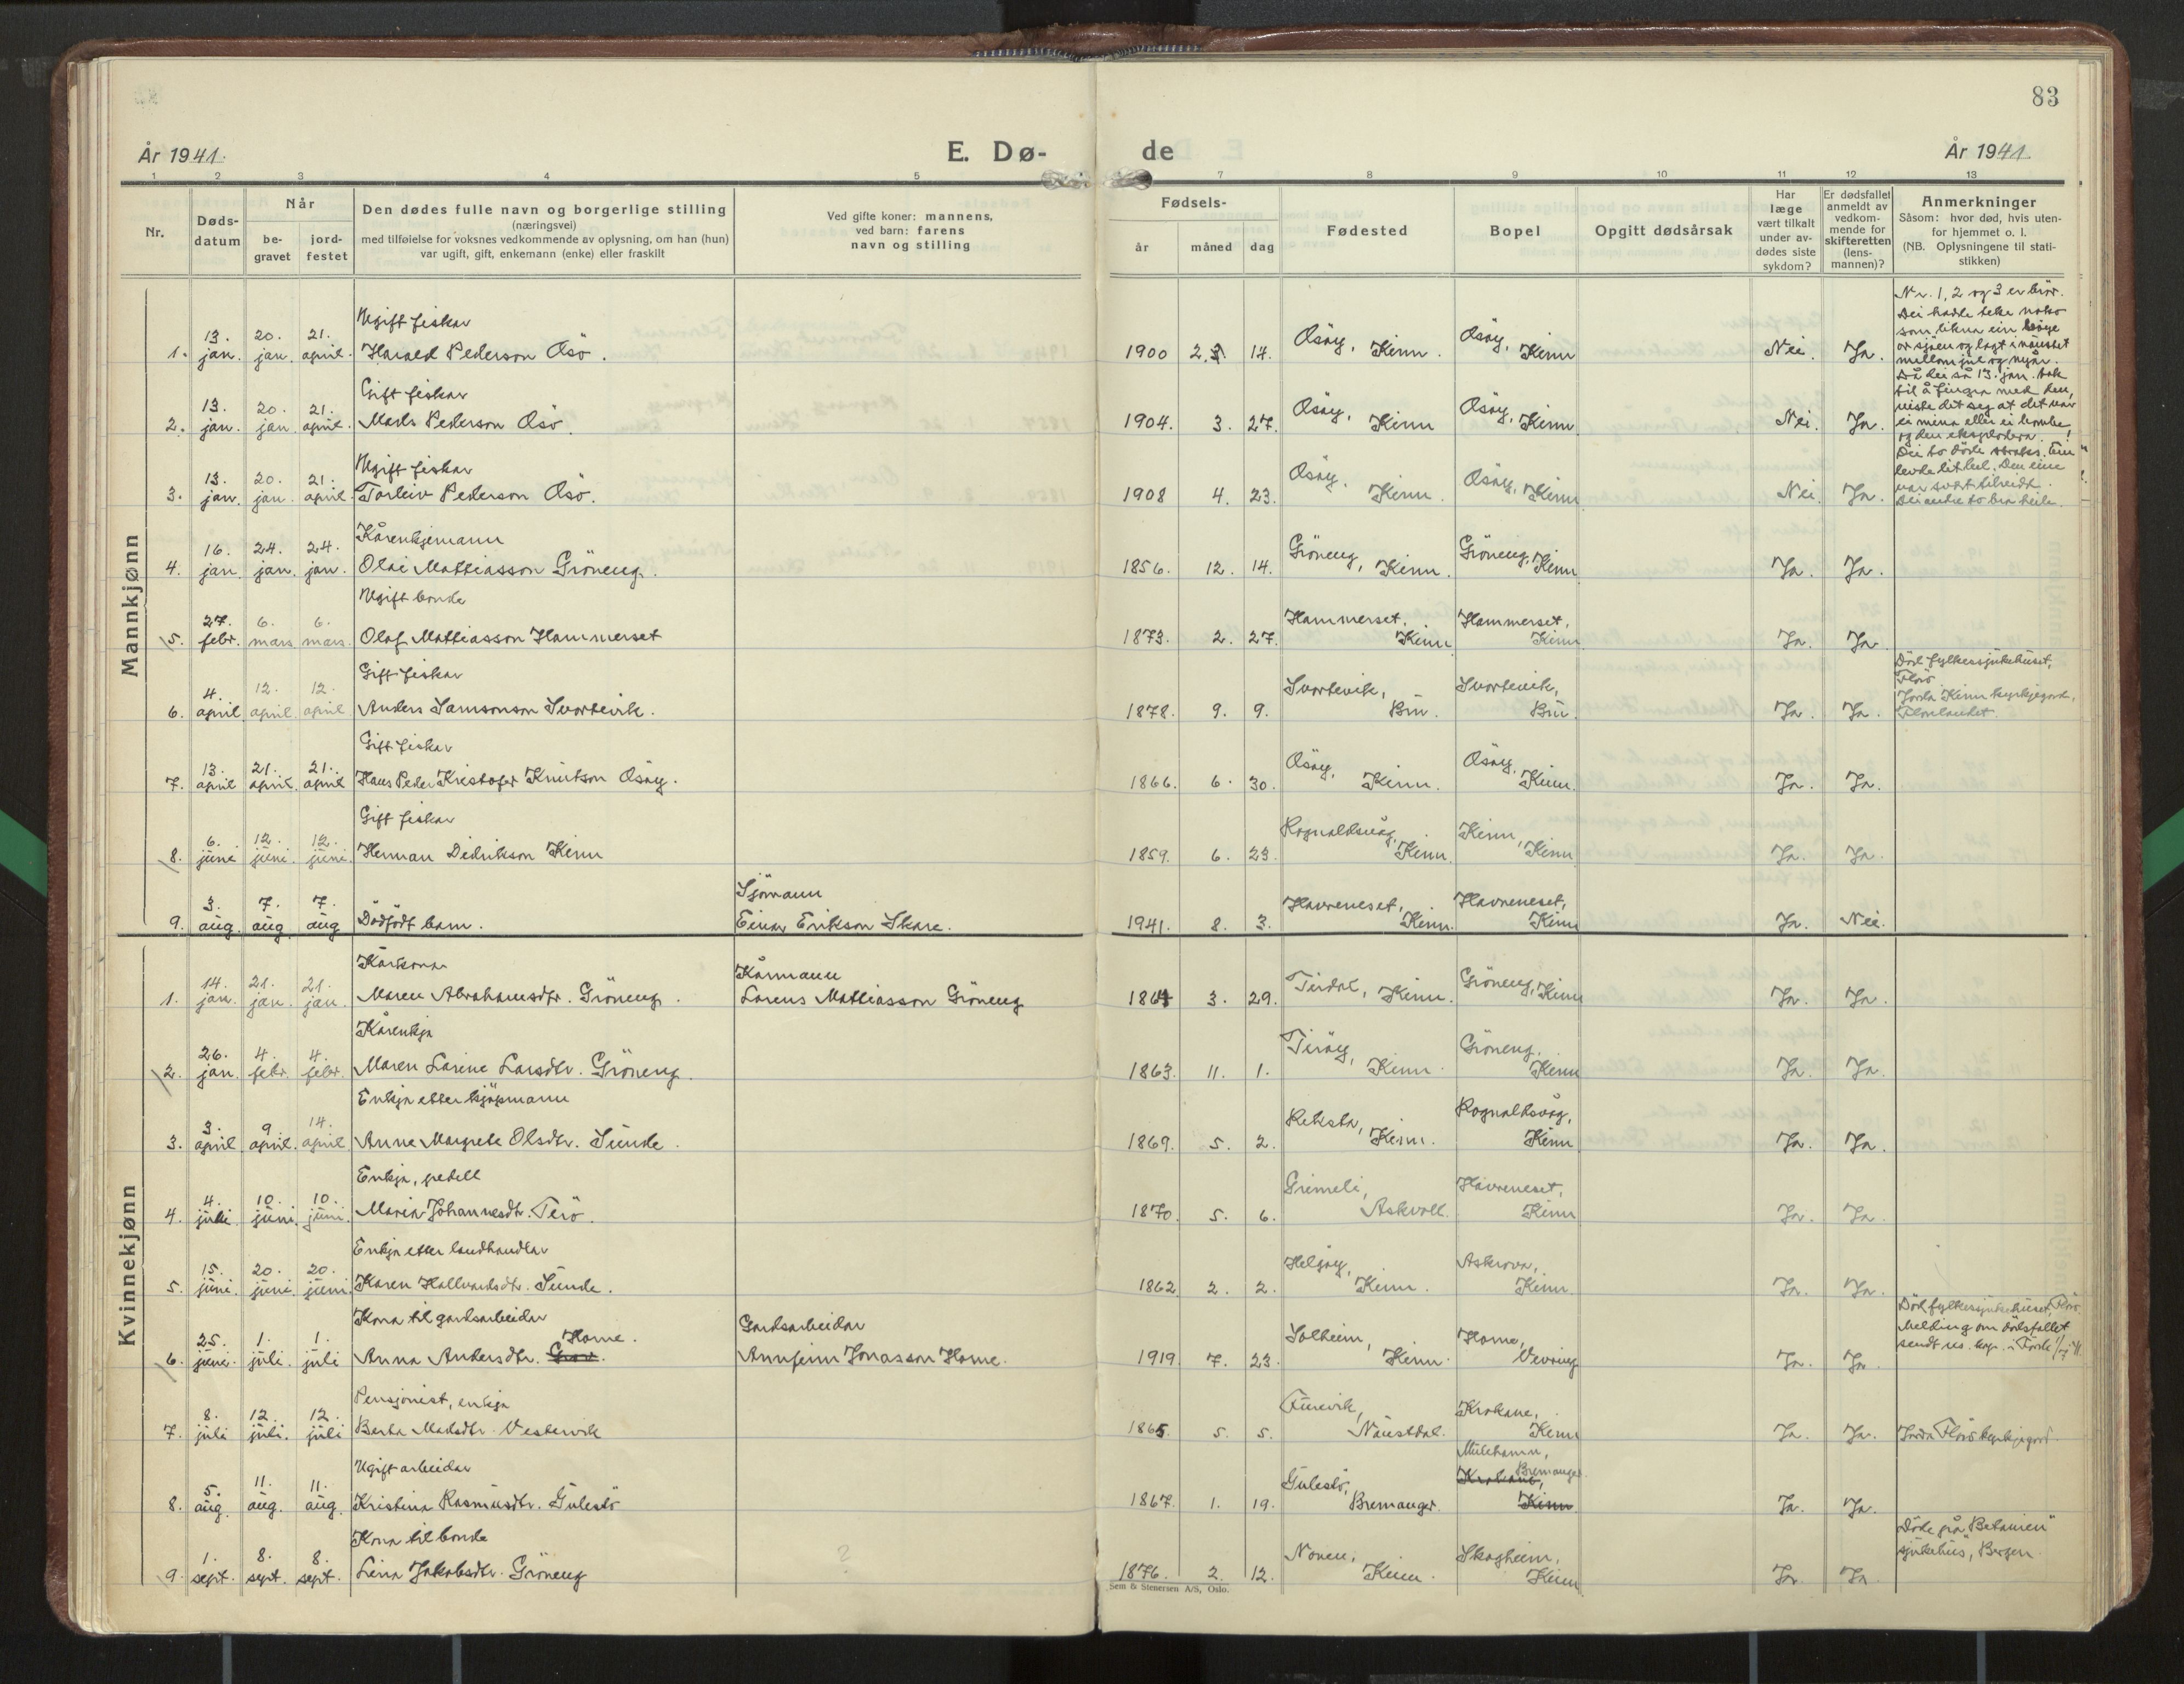 83
År 1941.
E. Dø-
de
År 1941
1 2 3 4 5 7 8 9 10 11 12 13
Nr.
Døds-
datum
Når
be-
gravet
jord-
festet
Den dødes fulle navn og borgerlige stilling
(næringsvei)
med tilføielse for voksnes vedkommende av oplysning, om han (hun)
var ugift, gift, enkemann (enke) eller fraskilt
Ved gifte koner: mannens,
ved barn: farens
navn og stilling
Fødsels-
år måned dag
Fødested
Bopel
Opgitt dødsårsak
Har
læge
vært tilkalt
under av-
dødes siste
sykdom?
Er dødsfallet
anmeldt av
vedkom-
mende for
skifteretten
(lens-
mannen)?
Anmerkninger
Såsom: hvor død, hvis uten-
for hjemmet o. l.
(NB. Oplysningene til stati-
stikken)
Mannkjønn
Ugift fiskar
1. 13. jan. 20. jan. 21. april. Harald Pederson Osö. 1900 2. 14. Osöy, Kinn. Osöy, Kinn Nei. Ja.
Nr. 1, 2 og 3 er brör.
Dei hadde teke noko
som likna ein
or sjöen og lagt i naustet
mellom jul og nyår.
Då dei så 13. jan. tok
til å fingra med den,
viste det seg at det var
ei mina eller ei bombe
og den eksplodera.
Dei to döde straks. Ein
levde litt lel. Den eine
var svært tilreidt.
Dei andre to bra heile.
Gift fiskar
2. 13. jan. 20. jan. 21. april. Mads Pederson Osö. 1904. 3. 27. Osöy, Kinn Osöy, Kinn Nei. Ja.
Ugift fiskar
3. 13. jan. 20. jan. 21. april Torleiv Pederson Osö. 1908 4. 23. Osöy, Kinn. Osöy, Kinn Nei. Ja.
Kårenkjemann
4. 16. jan. 24. jan. 24. jan. Olai Mattiasson Gröneng. 1856. 12. 14. Gröneng, Kinn. Gröneng, Kinn Ja. Ja.
Ugift bonde
5. 27. febr. 6. mars 6. mars. Olaf Mattiasson Hammerset 1873. 2. 27. Hammerset, Kinn Hammerset, Kinn Ja. Ja.
Gift fiskar
6. 4. april. 12. april. 12. april Anders Samsonson Svortevik. 1878. 9. 9. Svortevik, Bru. Svortevik, Bru. Ja. Ja.
Död fylkessjukehuset,
Florö
Jorda Kinn kyrkjegard,
Florelandet.
Gift fiskar
7. 13. april 21. april. 21. april Hans Peder Kristofer Knutson Osöy. 1866. 6. 30. Osöy, Kinn. Osöy, Kinn. Ja. Ja.
Gift fiskar
8. 6. juni 12. juni. 12. juni. Herman Didrikson Kinn 1859. 6. 23. Rognaldsvåg, Kinn. Kinn, Kinn Ja. Ja.
Sjömann
9. 3. aug. 7. aug 7. aug Dödfödt barn. Einar Erikson Skare. 1941. 8. 3. Havreneset, Kinn. Havreneset, Kinn Ja. Nei.
Kvinnekjønn
Kårkona Kårmann
1. 14. jan. 21. jan. 21. jan. Maren Abrahamsdtr. Gröneng. Larens Mattiasson Gröneng 1864 3. 29. Tindal, Kinn. Gröneng, Kinn Ja. Ja.
Kårenkja
2. 26. jan 4. febr. 4. febr. Maren Larine Larsdtr. Gröneng. 1863. 11. 1. Teröy, Kinn. Gröneng, Kinn Ja. Ja.
Enkja etter kjöpmann
3. 3. april 9. april. 14. april Anne Margrete Olsdtr. Sunde. 1869. 5. 2. Reksta, Kinn. Rognaldsvåg, Kinn Ja. Ja.
Enkja, pedell
4. 4. juni. 10. juni. 10. juni. Maria Johannesdtr. Terö. 1870. 5. 6. Grimeli, Askvoll. Havreneset, Kinn Ja. Ja.
Enkja etter landhandlar
5. 15. juni. 20. juni. 20. juni. Karen Hallvardsdtr. Sunde. 1862 2. 2. Helgöy, Kinn. Askrova, Kinn. Ja. Ja.
Kona til gardsarbeidar Gardsarbeidar
6. 25. juni. 1. juli. 1. juli Anna Andersdtr. Horne. Annfinn Jonasson Horne. 1919 7. 23. Solheim, Kinn. Horne, Vevring Ja. Ja.
Död fylkessjukehuset, Florö.
Melding om dödsfallet
sendt res. kap. i Förde 1/7 41.
Pensjonist, enkja
7. 8. juli 12. juli. 12. juli Berta Madsdtr. Vestervik 1865 5. 5. Furevik, Naustdal. Krokane, Kinn Ja. Ja. Jorda Florö kyrkjegard.
Ugift arbeidar
8. 5. aug. 11. aug. 11. aug. Kristina Rasmusdtr. Gulestö 1867. 1. 19. Gulestö, Bremanger. Mulehamn, Bremanger. Krokane, Kinn Ja. Ja.
Kona til bonde
9. 1. sept. 8. sept. 8. sept. Lina Jakobsdtr. Gröneng ? 1876. 2. 12. Noven, Kinn. Skogheim, Kinn Ja. Ja.
Döde på "Betanien"
sjukehus, Bergen
Sem & Stenersen A/S, Oslo.